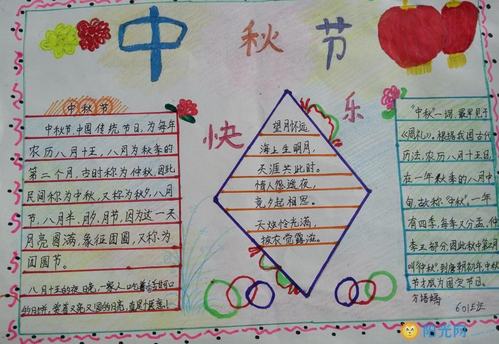 中秋节
快乐
中秋节
中秋节中国传统节日,为每年
农历八月十五,八月为秋季的
第二个月,古时称为仲秋,因此
民间称为中秋,又称为秋夕,八月
节,八月半,月夕,月节,因为这一天
月亮圆满,象征团圆,又称为
团圆节。
八月十五的夜晚,一家人
望月怀远
海上生明月,
天涯共此时。
情人怨遥夜,
竟夕起相思。
灭烛怜光满,
披衣觉露滋。
"中秋"一词,最早见于
《周礼》,根据我国古代
历法,农历八月十五日
在一年秋季的八月中
旬,故称"仲秋",一年
有四季,每季又分孟,仲
季三部分,因此秋中第2月
叫仲秋,到唐朝初年,中秋
节才成为固定节日。
601班
阳光网